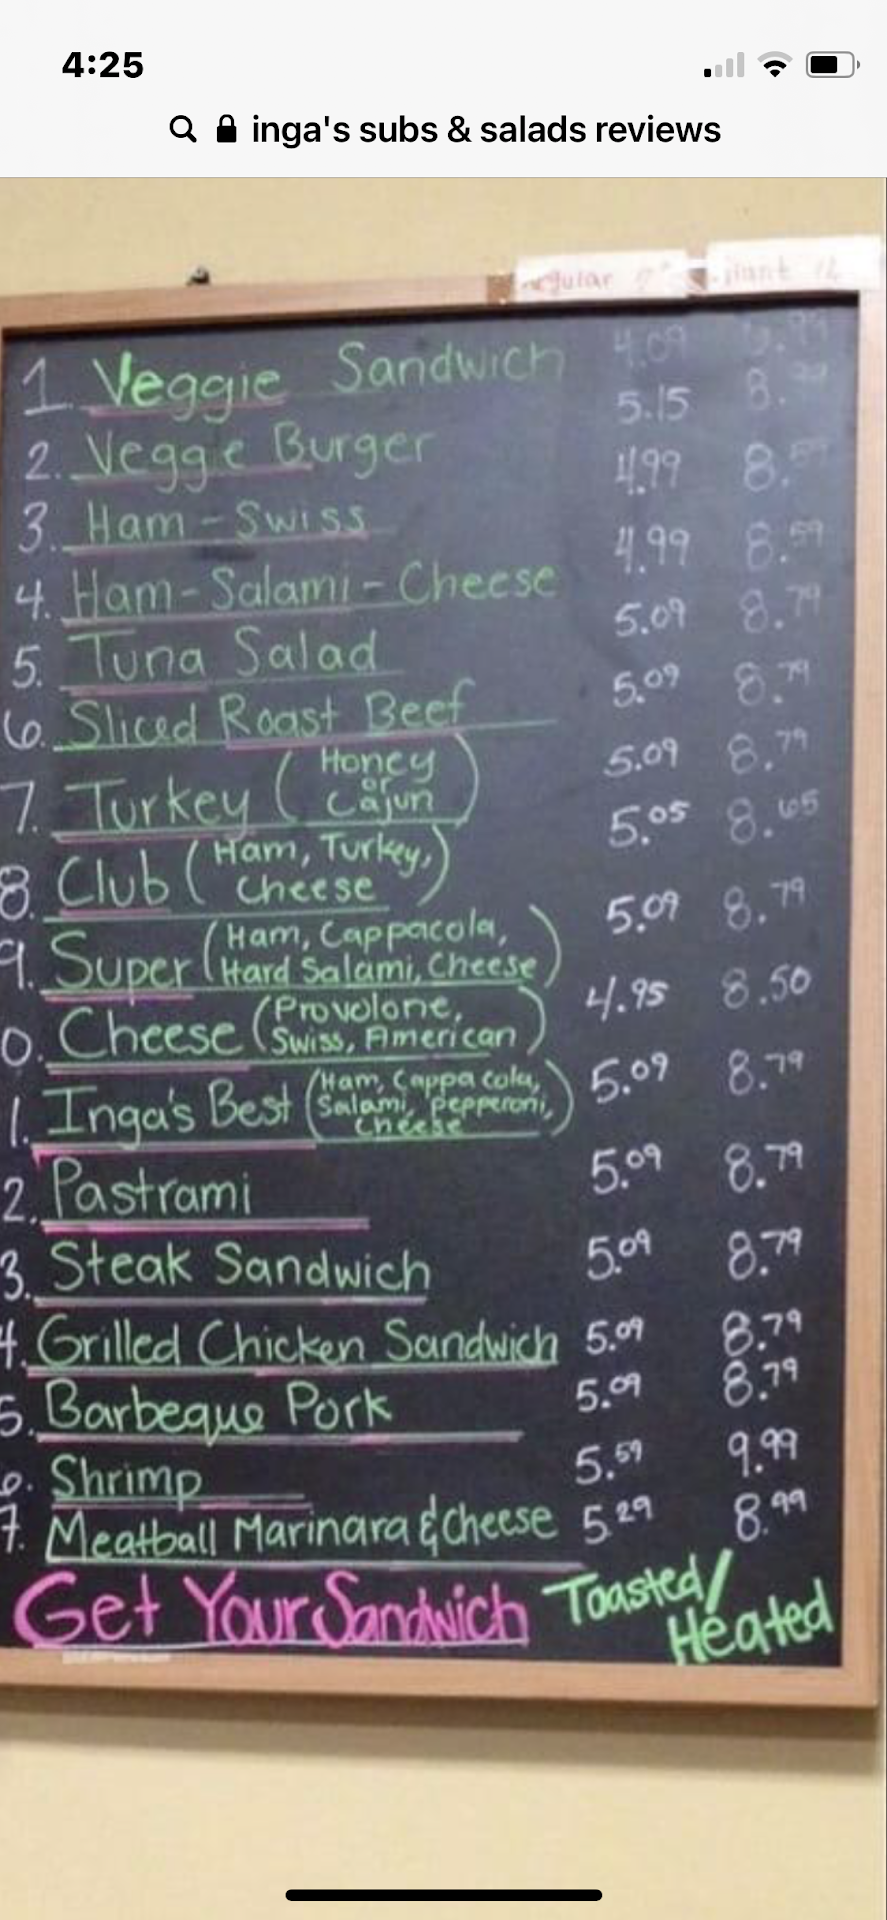 4:25
inga's subs & salads reviews
1. Veggie Sandwich 4.09
2. Veggie Burger 5.15
3. Ham - Swiss 4.99
4. Ham - Salami - Cheese 4.99 8.59
5. Tuna Salad 5.09 8.79
6. Sliced Roast Beef 5.09 8.79
7. Turkey (Honey or Cajun) 5.09 8.79
8. Club (Ham, Turkey, Cheese) 5.05 8.65
9. Super (Ham, Cappacola, Hard Salami, Cheese) 5.09 8.79
0. Cheese (Provolone, Swiss, American) 4.95 8.50
1. Inga's Best (Ham, Cappacola, Salami, pepperoni, cheese) 5.09 8.79
2. Pastrami 5.09 8.79
3. Steak Sandwich 5.09 8.79
4. Grilled Chicken Sandwich 5.09 8.79
5. Barbeque Pork 5.09 8.79
6. Shrimp 5.59 9.99
7. Meatball Marinara & Cheese 5.29 8.99
Get Your Sandwich Toasted/
Heated